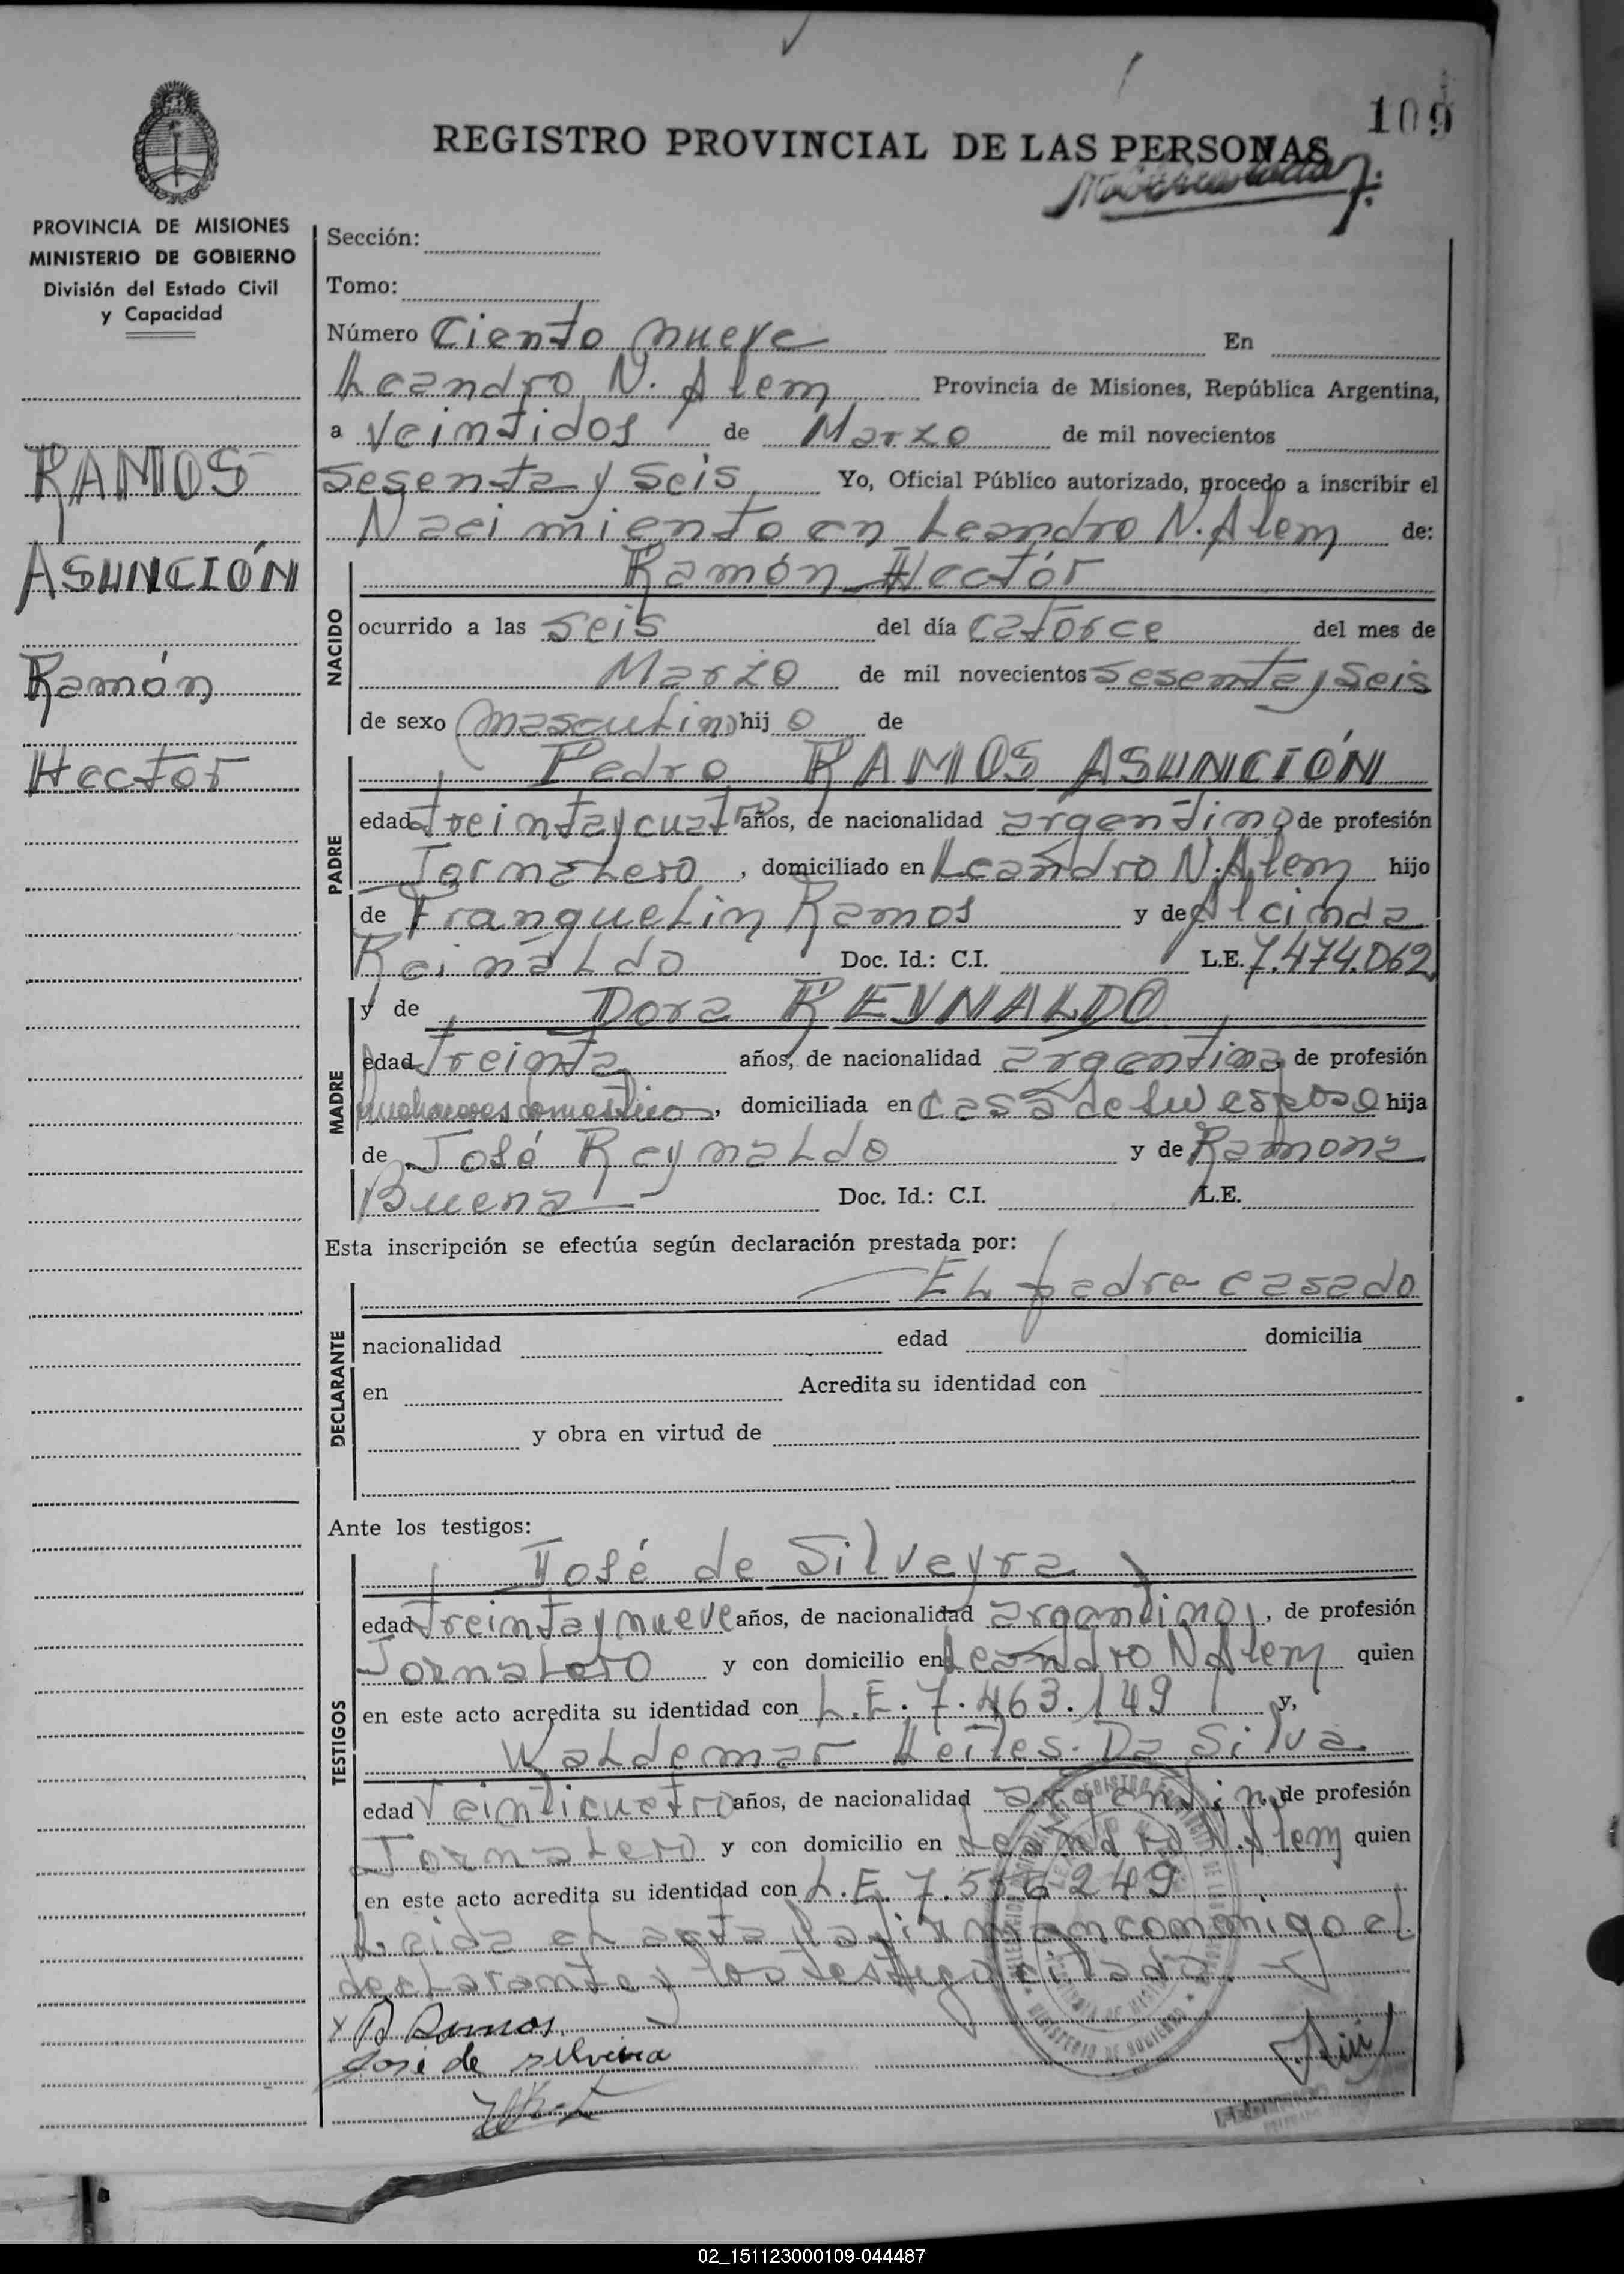 109
REGISTRO PROVINCIAL DE LAS PERSONAS
PROVINCIA DE MISIONES
MINISTERIO DE GOBIERNO
División del Estado Civil
y Capacidad
RAMOS
ASUNCIÓN
Ramón
Hector
Sección:
Tomo:
Número Ciento nueve En
Leandro N. Alem Provincia de Misiones, República Argentina,
a Veintidos de Marzo de mil novecientos
sesenta y seis Yo, Oficial Público autorizado, procedo a inscribir el
Nacimiento en Leandro N. Alem de:
NACIDO
Ramón Hectór
ocurrido a las seis del día catorce del mes de
Marzo de mil novecientos sesenta y seis
de sexo masculino hijo de
PADRE
Pedro RAMOS ASUNCIÓN
edad treinta y cuatro años, de nacionalidad argentino de profesión
Jornalero, domiciliado en Leandro N. Alem hijo
de Franquelin Ramos y de Alcinda
Reinaldo Doc. Id.: C.I. L.E. 7.474.062
MADRE
y de Dora REYNALDO
edad treinta años, de nacionalidad argentina de profesión
quehaceres domesticos, domiciliada en casa de su esposo hija
de José Reynaldo y de Ramona
Buena Doc. Id.: C.I. L.E.
Esta inscripción se efectúa según declaración prestada por:
DECLARANTE
El padre casado
nacionalidad edad domicilia
en Acredita su identidad con
y obra en virtud de
Ante los testigos:
TESTIGOS
José de Silveyra
edad treinta y nueve años, de nacionalidad argentino, de profesión
Jornalero y con domicilio en Leandro N Alem quien
en este acto acredita su identidad con L.E. 7.463.149 y,
Waldemar Heiles Da Silva
edad Veinticuatro años, de nacionalidad argentino de profesión
Jornalero y con domicilio en Leandro N. Alem quien
en este acto acredita su identidad con L.E. 7.556.249
Leida el acta la firman conmigo el
declarante y los testigos citados.
x P Ramos
José de silveira
02_151123000109-044487